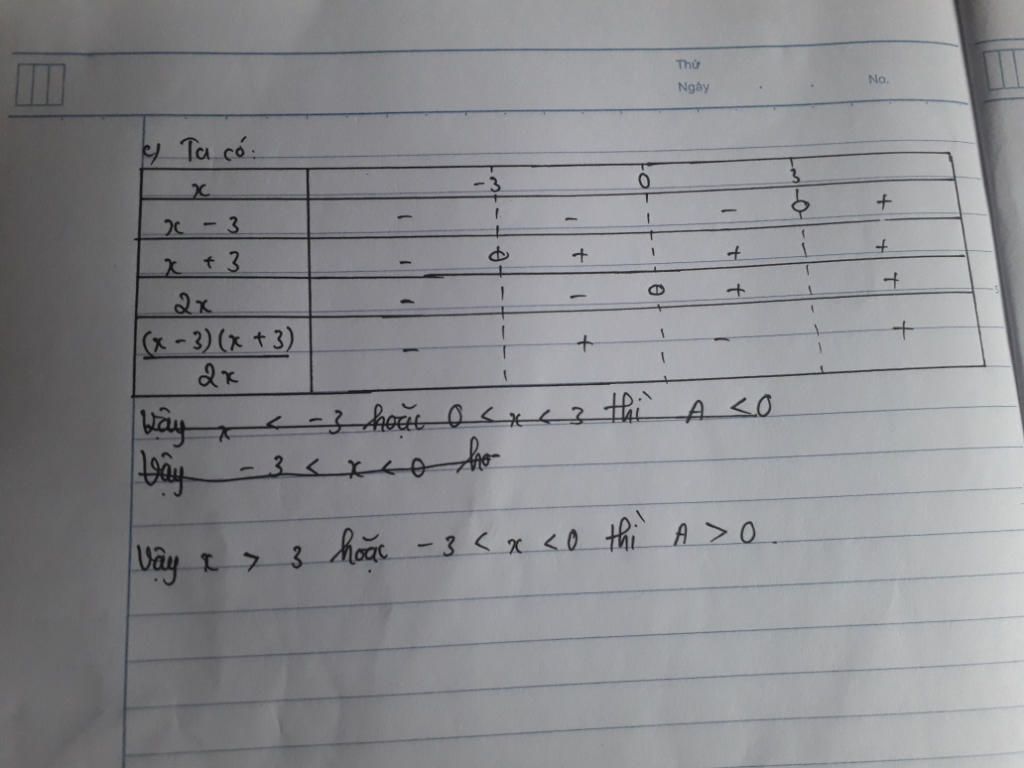 Thứ
Ngày . . No.
c) Ta có:
x -3 0 3
x - 3 - - - 0 +
x + 3 - 0 + + +
2x - - 0 + +
(x - 3)(x + 3)
2x
- + - +
Vậy x < -3 hoặc 0 < x < 3 thì A < 0
Vậy -3 < x < 0 ho
Vậy x > 3 hoặc -3 < x < 0 thì A > 0.